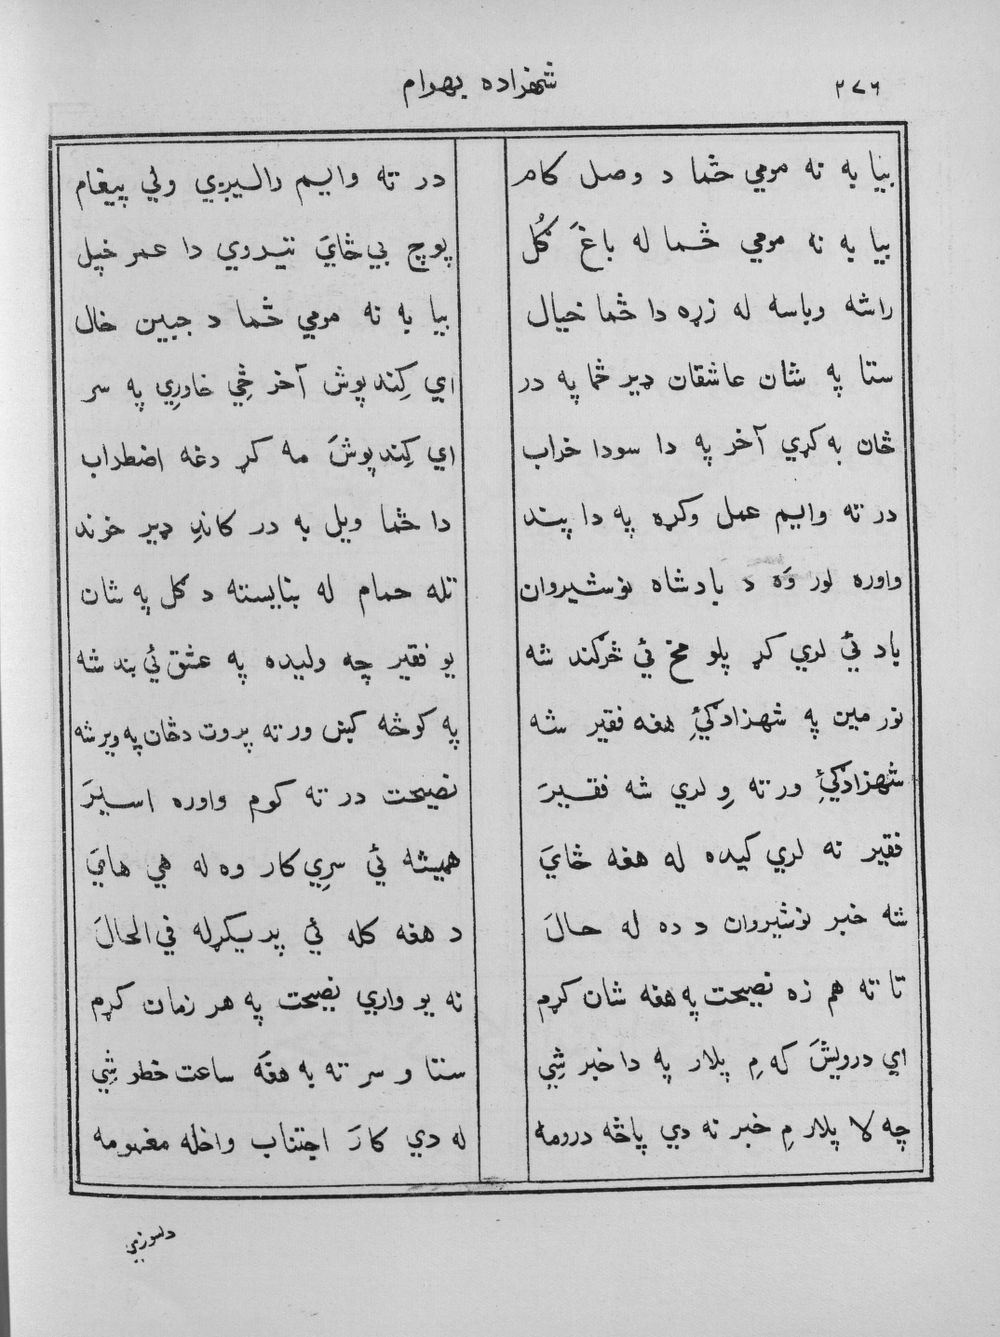 ٢٧٦
شهزاده بهرام
بیا به نه مومي څما د وصل کام
در ته وایم رالیږي ولي پیغام
بیا به نه مومي څما له باغَ ګُل
پوچ بي ځایَ تیروي دا عمر خپل
راشه وباسه له زړه دا څما خیال
بیا به نه مومي څما د جبین خال
ستا په شان عاشقان ډیر څما په در
اي کِندپوش آخر څي خاورِي په سر
ځان به کړي آخر په دا سودا خراب
اي کِندپوشَ مه کړ دغه اضطراب
در ته وایم عمل وکړه په دا پند
دا څما ویل به در کاندِ ډیر خوند
واوره لور وَه د بادشاه نوشیروان
تله حمام له ښایسته د ګل په شان
باد ئي لري کړ پلو مخ ئي څرګند شه
یو فقیر چه ولیده په عشق ئي بند شه
نور مین په شهزادګۍِ هغه فقیر شه
په کوڅه کښ ورته پروت دځان په ویر شه
شهزادګۍِ ورته وِ لري شه فقیرَ
نصیحت در ته کوم واوره اسیرَ
فقیر نه لري کیده له هغه ځایَ
همیشه ئي سرِي کار وه له هي هايَ
شه خبر نوشیروان د ده له حالَ
د هغه کله ئي پریکړله في الحالَ
تا ته هم زه نصیحت په هغه شان کړم
نه یو واري نصیحت په هر زمان کړم
اي درویشَ که مِ پلار په دا خبر شِي
ستا و سر ته به هغَه ساعت خطر شِي
چه لا پلار مِ خبر نه دي پاڅه درومه
له دي کارَ اجتناب واخله مفهومه
دلسوزي